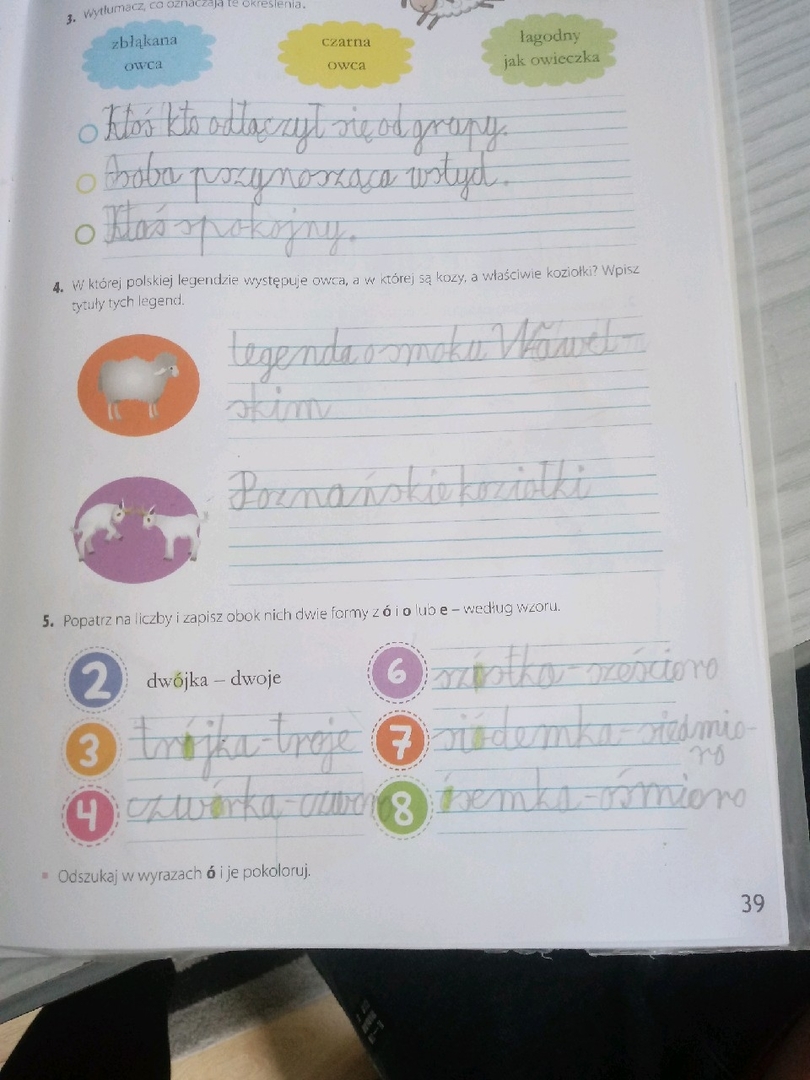 3. Wytłumacz, co oznaczają te określenia.
zbłąkana
owca
czarna
owca
łagodny
jak owieczka
Ktoś kto odłączył się od grupy.
Osoba przynosząca wstyd.
Ktoś spokojny.
4. W której polskiej legendzie występuje owca, a w której są kozy, a właściwie koziołki? Wpisz
tytuły tych legend.
legenda o smoku Wawel-
skim
Poznańskie koziołki
5. Popatrz na liczby i zapisz obok nich dwie formy z ó i o lub e – według wzoru.
2 dwójka – dwoje
6 szóstka - sześcioro
3 trójka - troje
7 siódemka - siedmio-
ro
4 czwórka - czworo
8 ósemka - ośmioro
Odszukaj w wyrazach ó i je pokoloruj.
39